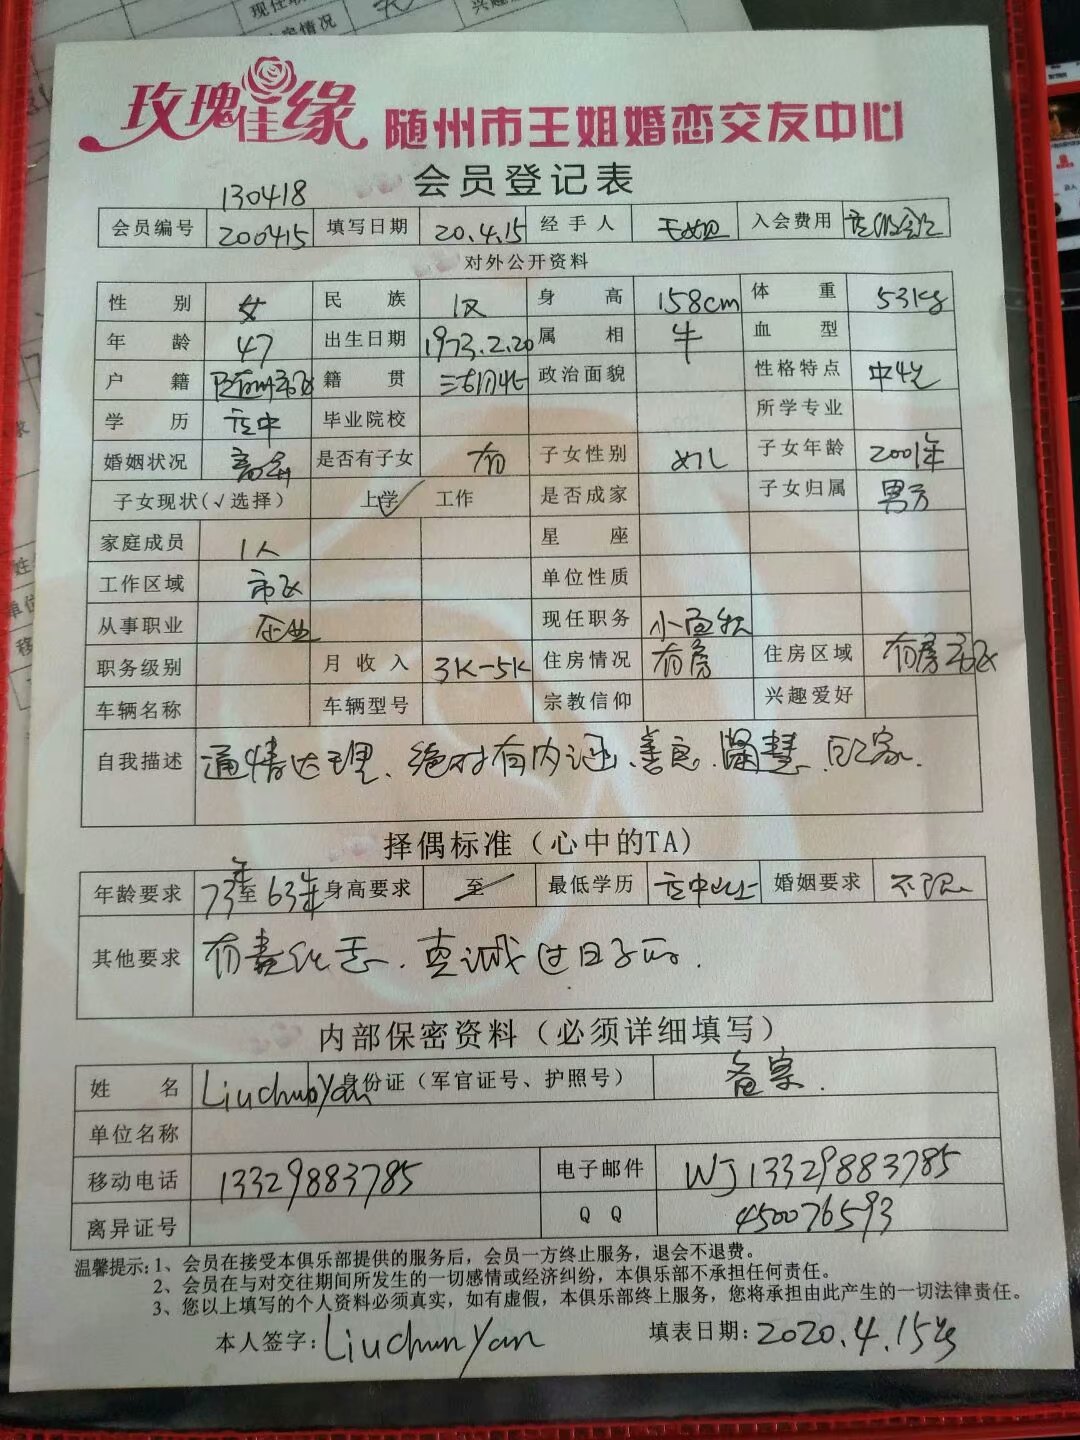 现任职
兴趣
玫瑰佳缘 随州市王姐婚恋交友中心
会员登记表
130418
会员编号 200415 填写日期 20.4.15 经手人 王姐 入会费用
对外公开资料
性别 女 民族 汉 身高 158cm 体重 53kg
年龄 47 出生日期 1973.2.20 属相 牛 血型
户籍 籍贯 政治面貌 性格特点
学历 高中 毕业院校 所学专业
婚姻状况 离异 是否有子女 有 子女性别 女儿 子女年龄 2001年
子女现状(√选择) 上学 ✓ 工作 是否成家 子女归属 男方
家庭成员 1人 星座
工作区域 市区 单位性质
从事职业 企业 现任职务
职务级别 月收入 3K-5K 住房情况 有房 住房区域 有房市区
车辆名称 车辆型号 宗教信仰 兴趣爱好
自我描述 通情达理、绝对有内涵、善良、贤慧、顾家.
择偶标准（心中的TA)
年龄要求 73年至63年 身高要求 至 最低学历 高中以上 婚姻要求 不限
其他要求 真诚过日子的.
内部保密资料（必须详细填写）
姓名 LiuchunYan 身份证（军官证号、护照号） 备案.
单位名称
移动电话 13329883785 电子邮件 WJ13329883785
离异证号 QQ 450076593
温馨提示:1、会员在接受本俱乐部提供的服务后，会员一方终止服务，退会不退费。
2、会员在与对交往期间所发生的一切感情或经济纠纷，本俱乐部不承担任何责任。
3、您以上填写的个人资料必须真实，如有虚假，本俱乐部终上服务，您将承担由此产生的一切法律责任。
本人签字: LiuchunYan 填表日期: 2020.4.15